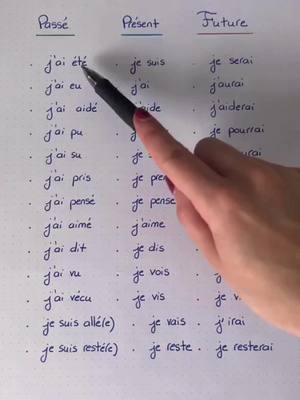 Passé Présent Future
. j'ai été . je suis . je serai
. j'ai eu . j'ai . j'aurai
. j'ai aidé . j'aide . j'aiderai
. j'ai pu . je pourrai
. j'ai su
. j'ai pris . je
. j'ai pensé . je pense
. j'ai aimé . j'aime
. j'ai dit . je dis
. j'ai vu . je vois
. j'ai vécu . je vis
. je suis allé(e) . je vais . j'irai
. je suis resté(e) . je reste . je resterai